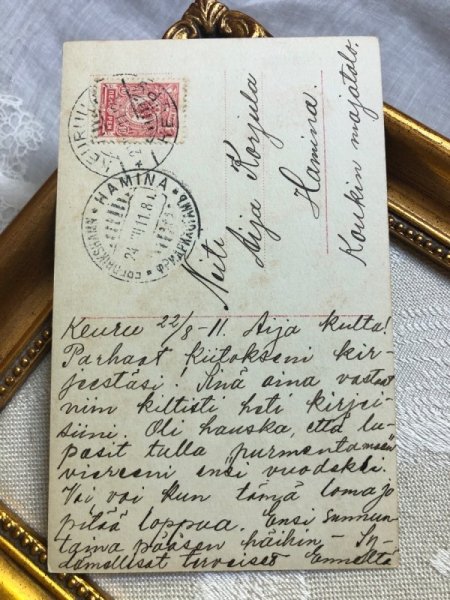 KEURUU
HAMINA
FREDRIKSHAMN
Neiti
Aija Korjula
Hamina.
Koukin majatalo.
Keuru 22/8-11. Aija kulta!
Parhaat kiitokseni kir-
jeestäsi! Sinä aina vastaat
niin kiltisti heti kirjei-
siini. Oli hauska, että lu-
pasit tulla
viereeni ensi vuodeksi.
Voi voi kun tämä loma jo
pitää loppua. Ensi sunnun-
taina pääsen häihin – Sy-
dämelliset terveiset Enneltä